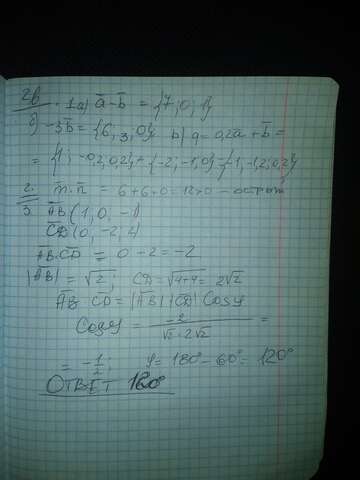 2в. 1a) a̅-b̅ = {7; 0; 1}
б) -3b̅ = {6, 3, 0} в) q = 0,2a̅ + b̅ =
= {1; -0,2; 0,2} + {-2; -1; 0} = {-1, -1,2; 0,2}
2. m̅·n̅ = 6+6+0=12>0 - острый
3 A̅B̅ (1, 0, -1)
C̅D̅ (0, -2, 2)
A̅B̅·C̅D̅ = 0-2=-2
|A̅B̅| = √2; CD=√4+4= 2√2
A̅B̅ C̅D̅ = |A̅B̅| |C̅D̅| Cosφ
Cosφ = -2/√2·2√2 =
= -1/2; φ=180°-60°= 120°
ОТВЕТ 120°